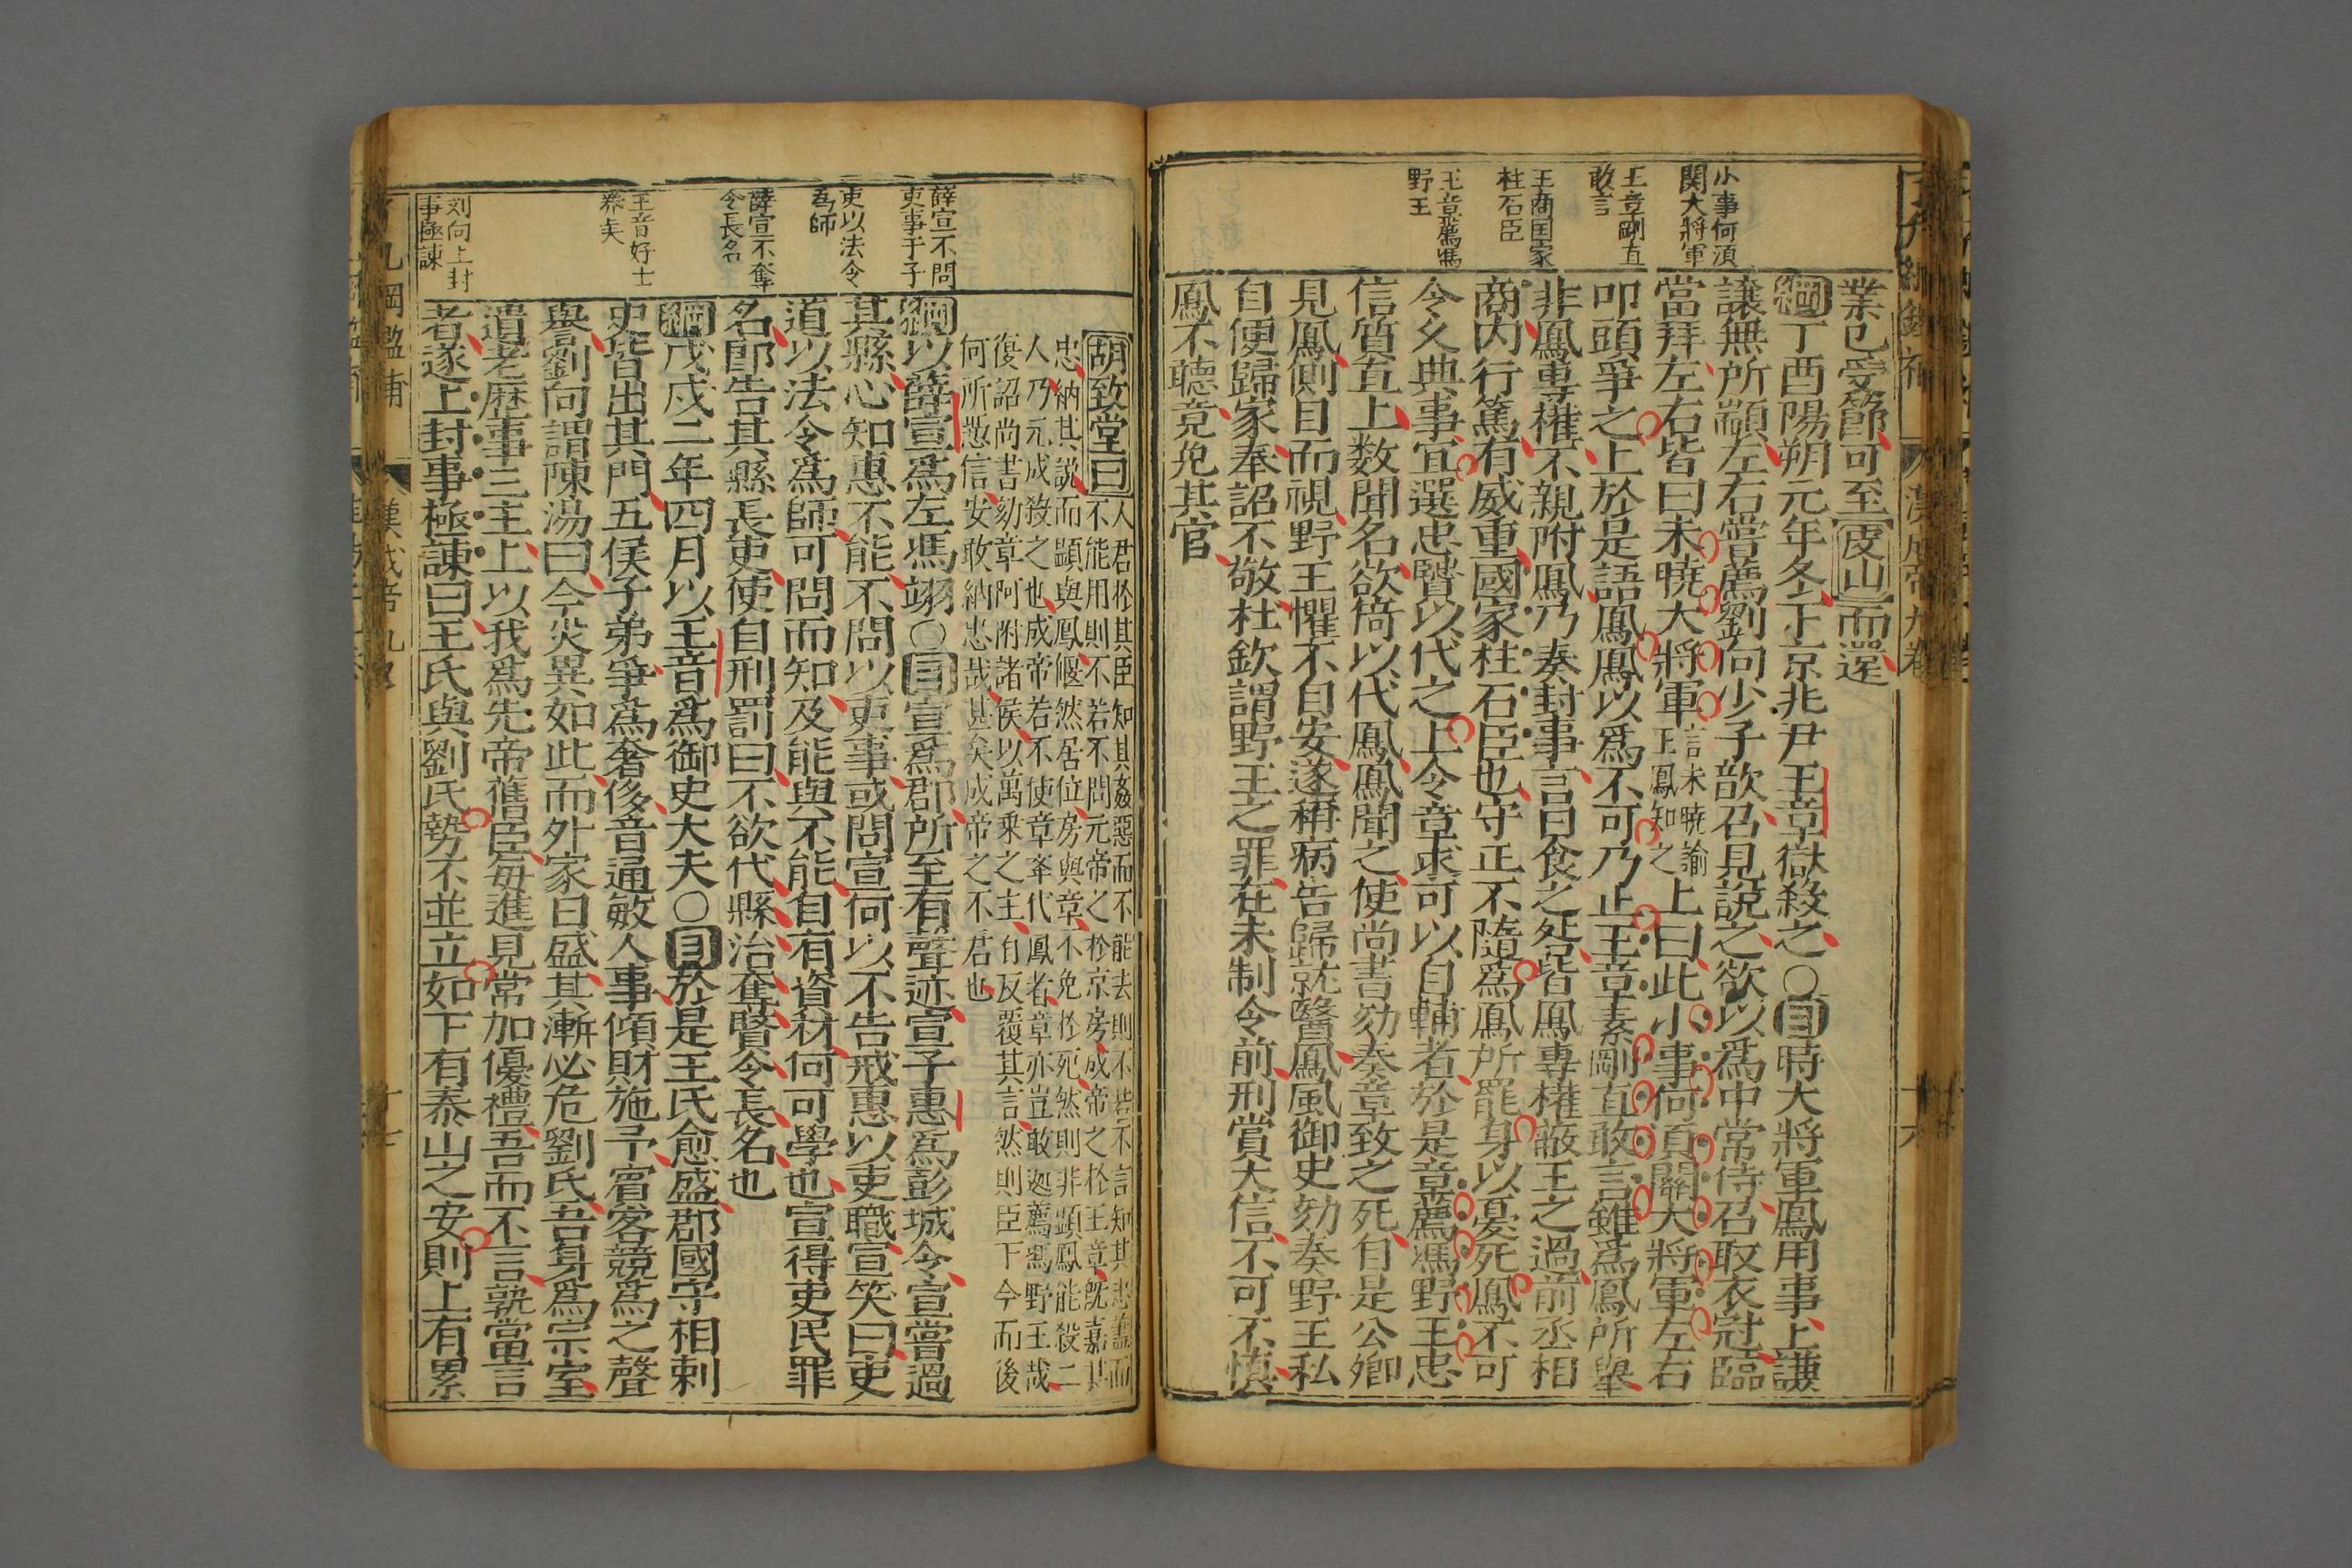 小事何湏
関大將軍
王章剛直
敢言
王商国家
柱石臣
王章薦馮
野王
業已受節可至皮山而還
綱丁酉陽朔元年冬下京兆尹王章獄殺之○目時大將軍鳳用事上謙
讓無所顓左右嘗薦劉向少子歆召見說之欲以爲中常侍召取衣冠臨
當拜左右皆曰未曉大將軍言未曉諭王鳳知之上曰此小事何湏關大將軍左右
叩頭爭之上於是語鳳鳳以爲不可乃止王章素剛直敢言雖爲鳳所舉
非鳳專權不親附鳳乃奏封事言日食之咎皆鳳專權蔽主之過前丞相
商内行篤有威重國家柱石臣也守正不隨爲鳳所罷身以憂死鳳不可
令乆典事宜選忠賢以代之上令章求可以自輔者於是章薦馮野王忠
信質直上数聞名欲倚以代鳳鳳聞之使尚書劾奏章致之死自是公卿
見鳳側目而視野王懼不自安遂稱病告歸就醫鳳風御史劾奏野王私
自便歸家奉詔不敬杜欽謂野王之罪在未制令前刑賞大信不可不慎
鳳不聽竟免其官
薛宣不問
吏事于子
吏以法令
爲師
薛宣不奪
令長名
王音好士
刘向上封
事極諫
胡致堂曰人君於其臣知其姦惡而不能去則不若不言知其忠蓋而
不能用則不若不問元帝之於京房成帝之於王章既嘉其
忠納其説而顯與鳳偃然居位房與章不免於死然則非顯鳳能殺二
人乃元成殺之也成帝若不使章举代鳳者章亦豈敢遽薦馮野王哉
復詔尚書劾章阿附諸侯以萬乗之主自反覆其言然則臣下今而後
何所慿信安敢納忠哉甚矣成帝之不君也
綱以薛宣爲左馮翊○目宣爲郡所至有聲迹宣子惠爲彭城令宣嘗過
其縣心知惠不能不問以吏事或問宣何以不告戒惠以吏職宣笑曰吏
道以法令爲師可問而知及能與不能自有資材何可學也宣得吏民罪
名即告其縣長吏使自刑罰曰不欲代縣治奪賢令長名也
綱戊戌二年四月以王音爲御史大夫○目於是王氏愈盛郡國守相刺
史皆出其門五侯子弟爭爲奢侈音通敏人事傾財施予賓客競爲之聲
譽劉向謂陳湯曰今災異如此而外家日盛其漸必危劉氏吾身爲宗室
遺老歷事三主上以我爲先帝舊臣每進見常加優禮吾而不言孰當言
者遂上封事極諫曰王氏與劉氏勢不並立如下有泰山之安則上有累